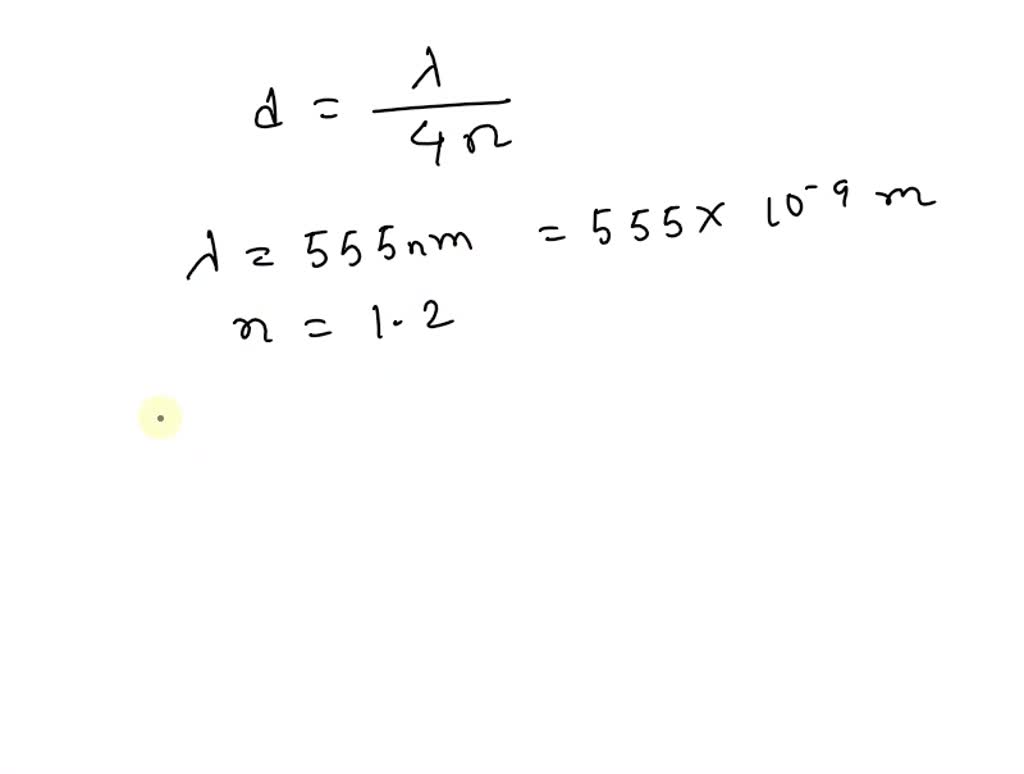 d = λ / 4n
λ = 555nm = 555 × 10⁻⁹ m
n = 1.2